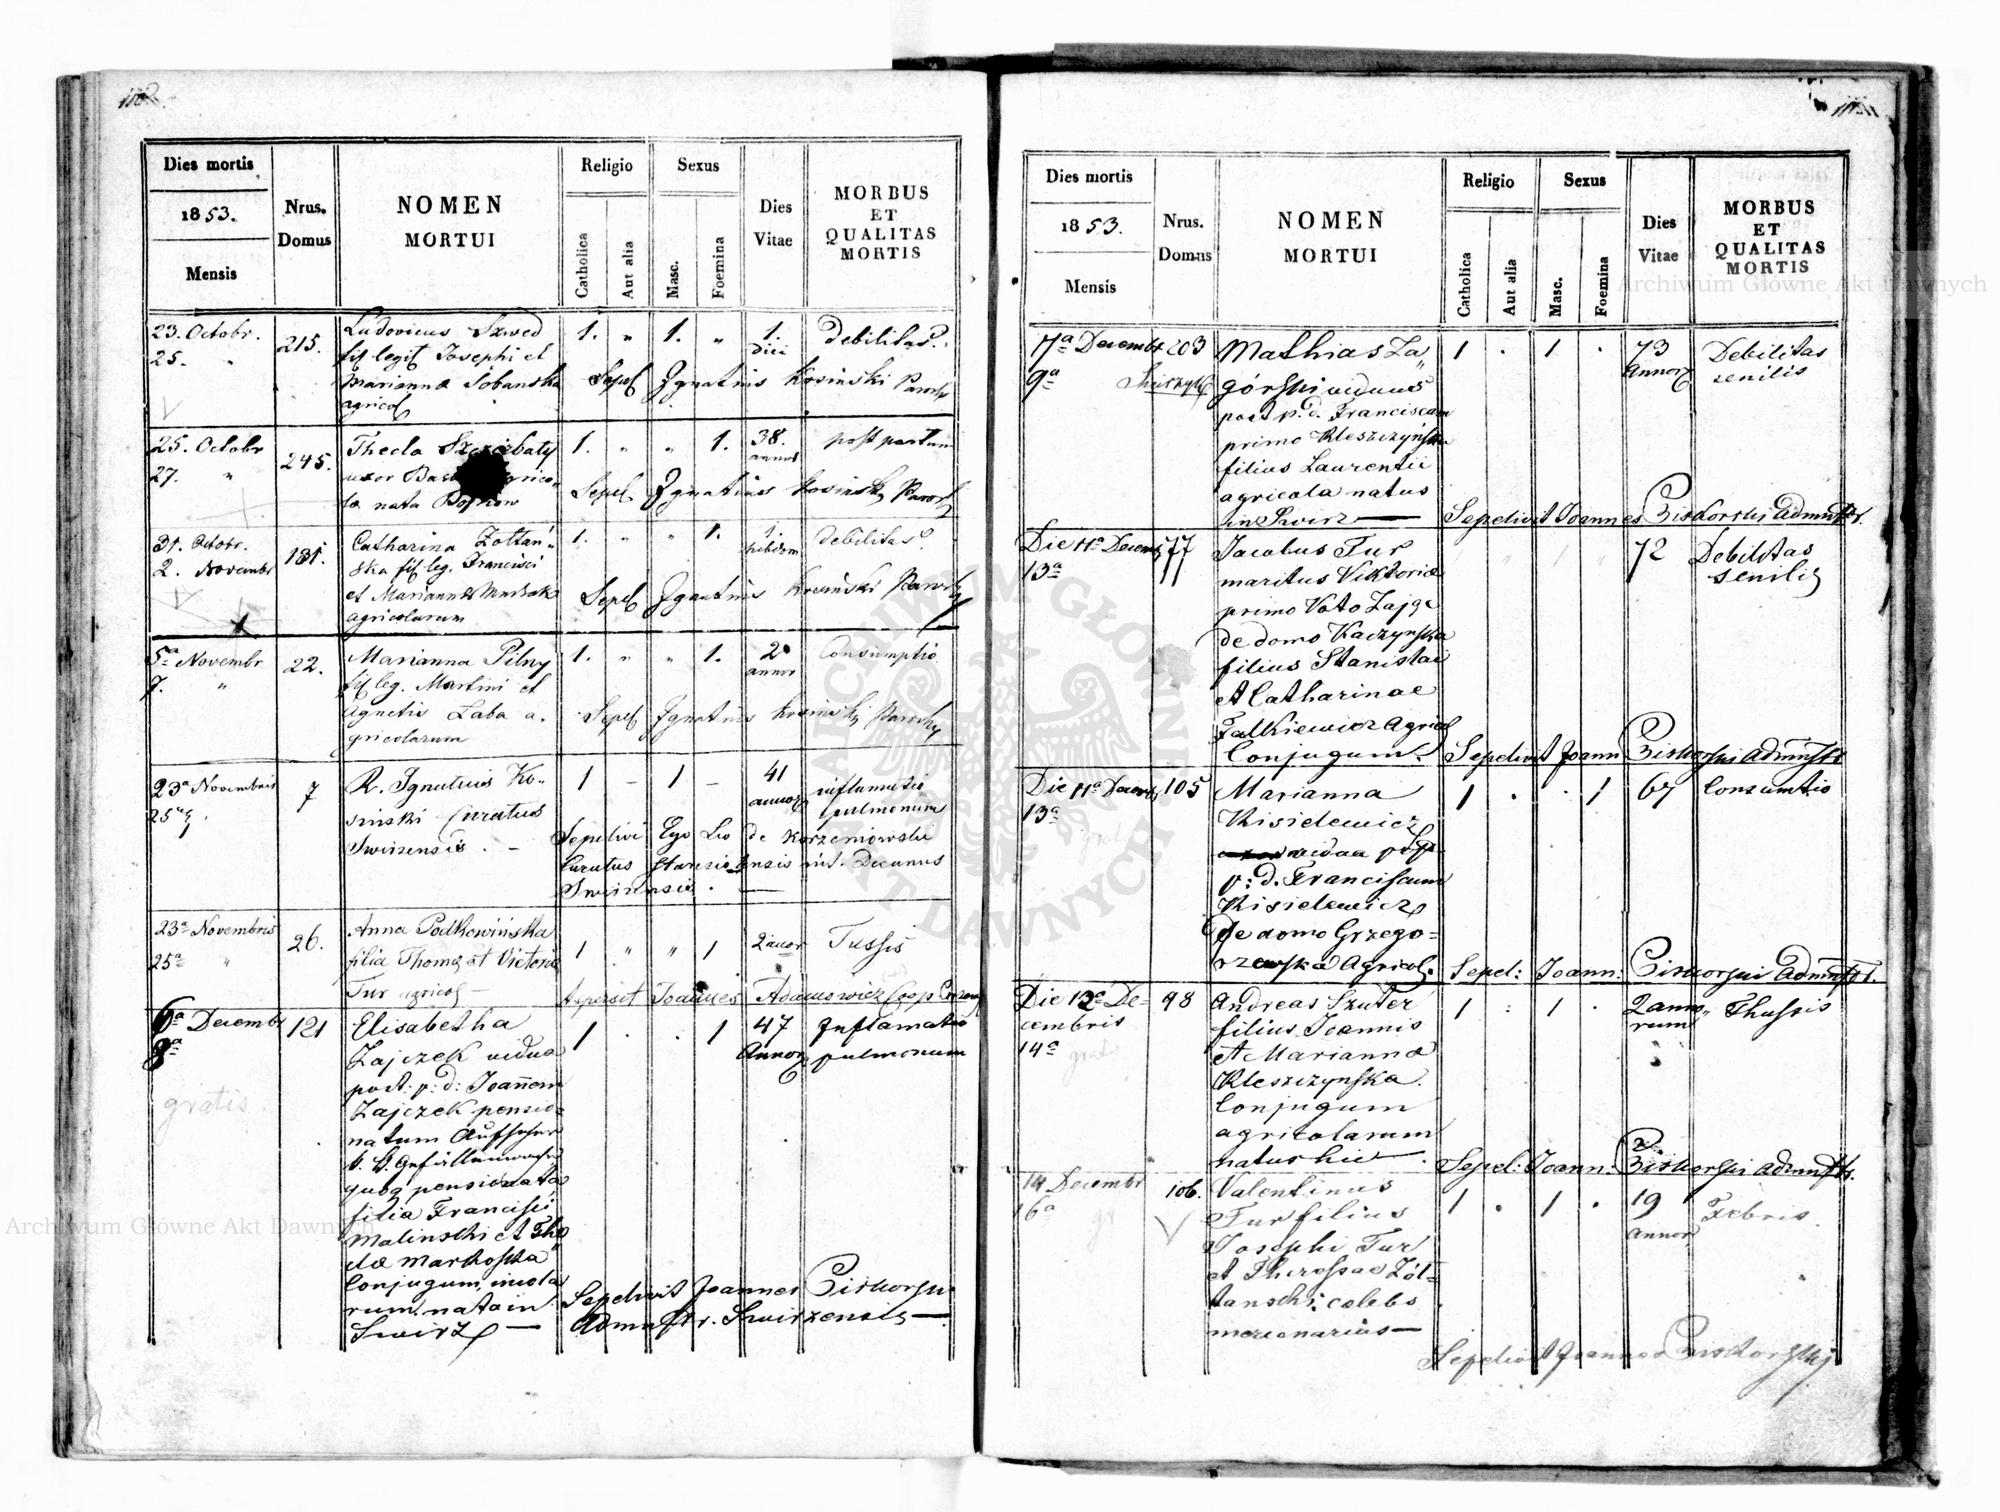 Dies mortis
1853.
Mensis
Nrus.
Domus
NOMEN
MORTUI
Religio
Catholica
Aut alia
Sexus
Masc.
Foemina
Dies
Vitae
MORBUS
ET
QUALITAS
MORTIS
23. Octobr. 215. Ludovicus Szwed 1. " 1. " 1. Debilitas.
25. " fil legit Josephi et
Marianna Sobanska Sepel Ignatius Kosinski Paroch
agricol
25. Octobr 245. Thecla 1. " " 1. 38. post partum
27. " uxor annor
la nata Sepel Ignatius Kosinski Paroch
31. Octobr. 131. Catharina Zołtań- 1. " " 1. 1 debilitas
2. Novembr ska fil leg. Francisci
et Marianna Sepel Ignatius Kosinski Paroch
agricolarum
5ª Novembr 22. Marianna Pilny 1. " " 1. 2 Consumptio
7. " fil leg. Martini et annor
Agnetis Łaba a- Sepel Ignatius Kosinski Paroch
gricolarum
23ª Novembris 7 R. Ignatius Ko- 1 – 1 – 41 inflamatio
25ª sinski Curatus annor pulmonum
Swirzensis. – Sepelivi Ego Leo de Korzeniowski
Curatus Decanus
Swirzensis.
23ª Novembris 26. Anna Podkowińska 1 " " 1 2 annor Tussis
25ª " filia Thoma et Victoria
Tur agricol – Joannes Adamowicz Coop
6ª Decembr 121 Elisabetha 1 . . 1 47 Inflamatio
8ª Zajczek vidua Annor pulmonum
post: p: d: Joannem
gratis Zajczek pensio-
natum Aufseher
pensionata
filia Francisci
Malinski et The
cla Markoska
Conjugum, incola
rum. nata in Sepelivit Joannes Piskorski
Swirz – Admnstr. Swirzensis –
Dies mortis
1853.
Mensis
Nrus.
Domus
NOMEN
MORTUI
Religio
Catholica
Aut alia
Sexus
Masc.
Foemina
Dies
Vitae
MORBUS
ET
QUALITAS
MORTIS
7ª Decembr 203 Mathias Za- 1 . 1 . 73 Debilitas
9ª górski viduus Annor senilis
post p. d. Franciscam
primo Kleszczyńska
filius Laurentii
agricola natus
in Swirz – Sepelivit Joannes Piskorski Admnstr.
Die 11ª Decemb 77 Jacobus Tur 72 Debilitas
13ª maritus Viktoria senilis
primo Voto Zajge
de domo Kaczynska
filius Stanislai
et Catharinae
Falkiewicz Agricol
Conjugum. Sepelivit Joann Piskorski Admnstr
Die 11ª Decemb 105 Marianna 1 . . 1 67 Consumtio
13ª Kisielewicz
vidua post
p: d. Franciscum
Kisielewicz
de domo Grzego-
rzewska Agricol. Sepel: Joann: Piskorski Admnstr.
Die 12ª De- 98 Andreas Szuter 1 : 1 . 2 anno- Thussis
cembris filius Joannis rum
14ª gratis et Marianna
Kleszczynska.
Conjugum
agricolarum
natus hic – Sepel: Joann: Piskorski Admnstr.
14 Decembr 106. Valentinus 1 . 1 . 19 Febris.
16ª gr Tur filius Annor
Josephi Tur
et Theressae Zół-
tanski; celebs
mercenarius –
Sepelivit Joannes Piskorski
Archiwum Główne Akt Dawnych
Archiwum Główne Akt Dawnych
ARCHIWUM GŁÓWNE AKT DAWNYCH